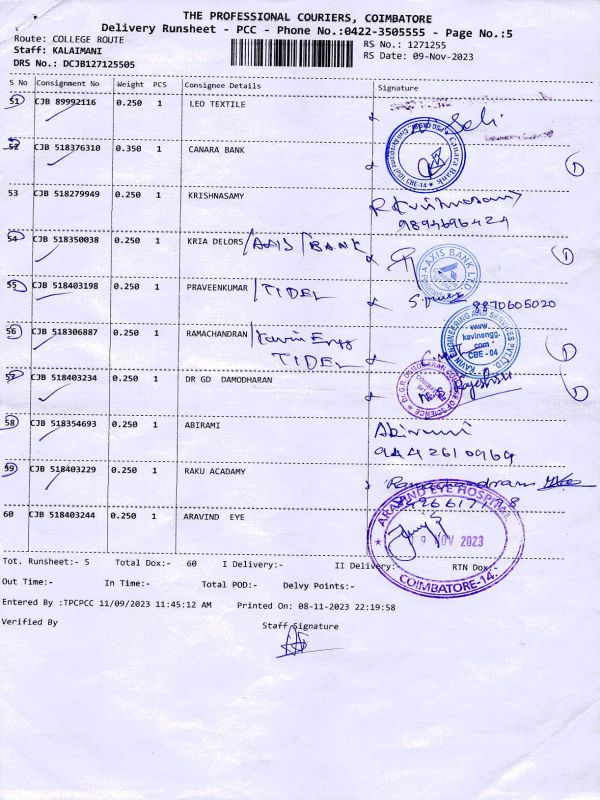 THE PROFESSIONAL COURIERS, COIMBATORE
Delivery Runsheet - PCC - Phone No.:0422-3505555 - Page No.:5
Route: COLLEGE ROUTE
RS No.: 1271255
Staff: KALAIMANI
RS Date: 09-Nov-2023
DRS No.: DCJB127125505
S No Consignment No Weight PCS Consignee Details Signature
51 CJB 89992116 0.250 1 LEO TEXTILE
52 CJB 518376310 0.350 1 CANARA BANK
Canara Bank
CBE-14
53 CJB 518279949 0.250 1 KRISHNASAMY
9894696424
54 CJB 518350038 0.250 1 KRIA DELORS /AXIS/BANK
AXIS BANK LTD
55 CJB 518403198 0.250 1 PRAVEENKUMAR /TIDEL
8870605020
56 CJB 518306887 0.250 1 RAMACHANDRAN /Kavin Engg
TIDEL
KAVIN ENGINEERING AND SERVICES PVT LTD
www.
kavinengg.
com
CBE - 04
57 CJB 518403234 0.250 1 DR GD DAMODHARAN
COLLEGE OF SCIENCE
Rajeshwari
58 CJB 518354693 0.250 1 ABIRAMI Abirami
9442610969
59 CJB 518403229 0.250 1 RAKU ACADAMY
60 CJB 518403244 0.250 1 ARAVIND EYE
ARAVIND EYE HOSPITAL
9 NOV 2023
COIMBATORE-14.
Tot. Runsheet:- 5 Total Dox:- 60 I Delivery:- II Delivery:- RTN Dox:-
Out Time:- In Time:- Total POD:- Delvy Points:-
Entered By :TPCPCC 11/09/2023 11:45:12 AM Printed On: 08-11-2023 22:19:58
Verified By Staff Signature